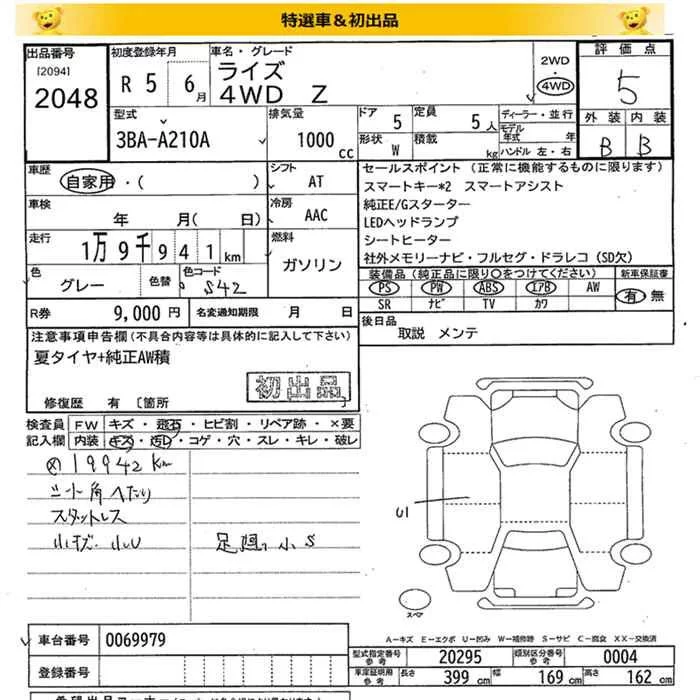 特選車＆初出品
出品番号
[2094]
2048
初度登録年月
R 5 6月
車名・グレード
ライズ
4WD Z
2WD
・
4WD
評価点
5
外装 内装
B B
型式
3BA-A210A
排気量
1000cc
ドア 5
定員 5人
形状 W
積載 kg
ディーラー・並行
モデル年式 年
ハンドル 左・右
車歴
自家用・( )
シフト
AT
車検
年 月( 日)
冷房
AAC
走行
1万9千941km
燃料
ガソリン
色
グレー
色替
色コード
S42
R券 9,000円
名変通知期限 月 日
セールスポイント (正常に機能するものに限ります)
スマートキー*2 スマートアシスト
純正E/Gスターター
LEDヘッドランプ
シートヒーター
社外メモリーナビ・フルセグ・ドラレコ (SD欠)
装備品(純正品に限り○をつけてください)
PS PW ABS エアB AW
SR ナビ TV カワ
新車保証書
有・無
後日品
取説 メンテ
注意事項申告欄(不具合内容等は具体的に記入して下さい)
夏タイヤ+純正AW積
初出品
修復歴 有 [箇所 ]
検査員記入欄
FW キズ・飛石・ヒビ割・リペア跡・×要
内装 キズ・汚れ・コゲ・穴・スレ・キレ・破レ
19942km
スタットレス
小キズ 小U
小S
U1
スペア
A－キズ E－エクボ U－凹み W－補修跡 S－サビ C－腐食 XX－交換済
車台番号 0069979
登録番号
型式指定番号参考 20295
類別区分番号参考 0004
車庫証明用参考
長さ 399 cm
幅 169 cm
高さ 162 cm